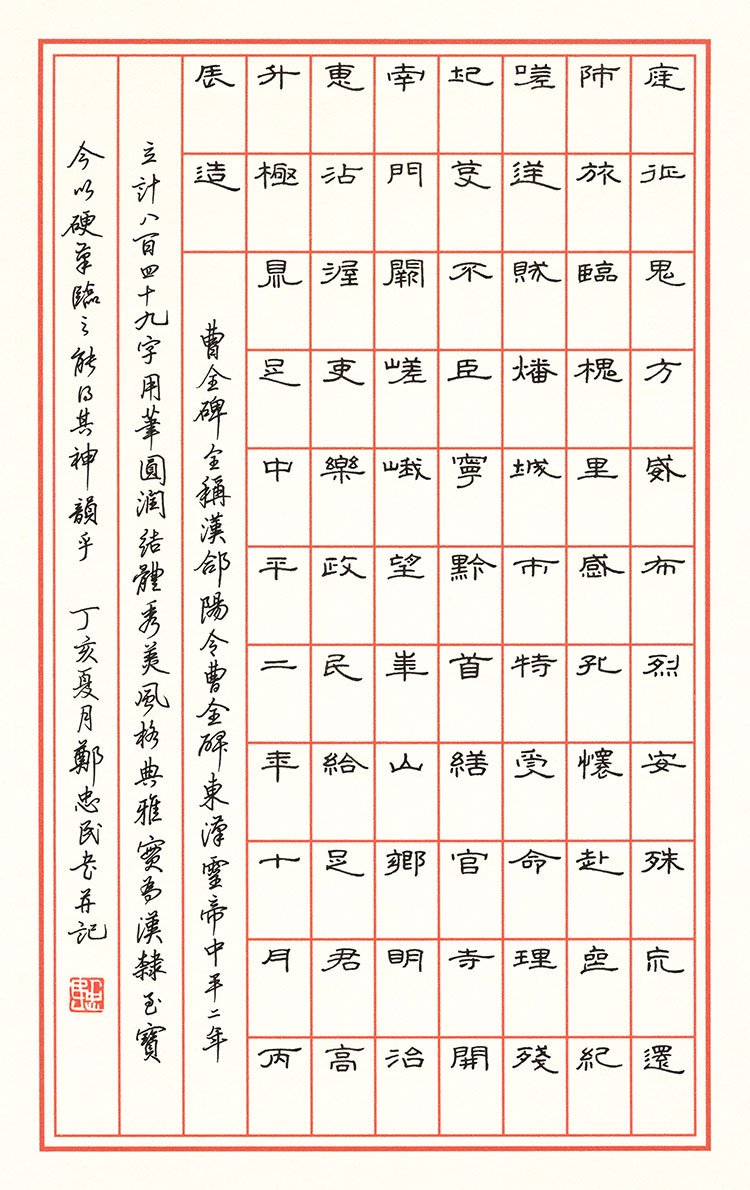 庭征鬼方威布烈安殊巟還
師旅臨槐里感孔懷赴喪紀
嗟逆賊燔城市特受命理殘
圮芟不臣寧黔首繕官寺開
南門闕嵯峨望華山鄉明治
惠沾渥吏樂政民給足君高
升極鼎足中平二年十月丙
辰造
曹全碑全稱漢郃陽令曹全碑東漢靈帝中平二年
立計八百四十九字用筆圓潤結體秀美風格典雅實為漢隸至寶
今以硬筆臨之能得其神韻乎 丁亥夏月鄭忠民書并記
忠民